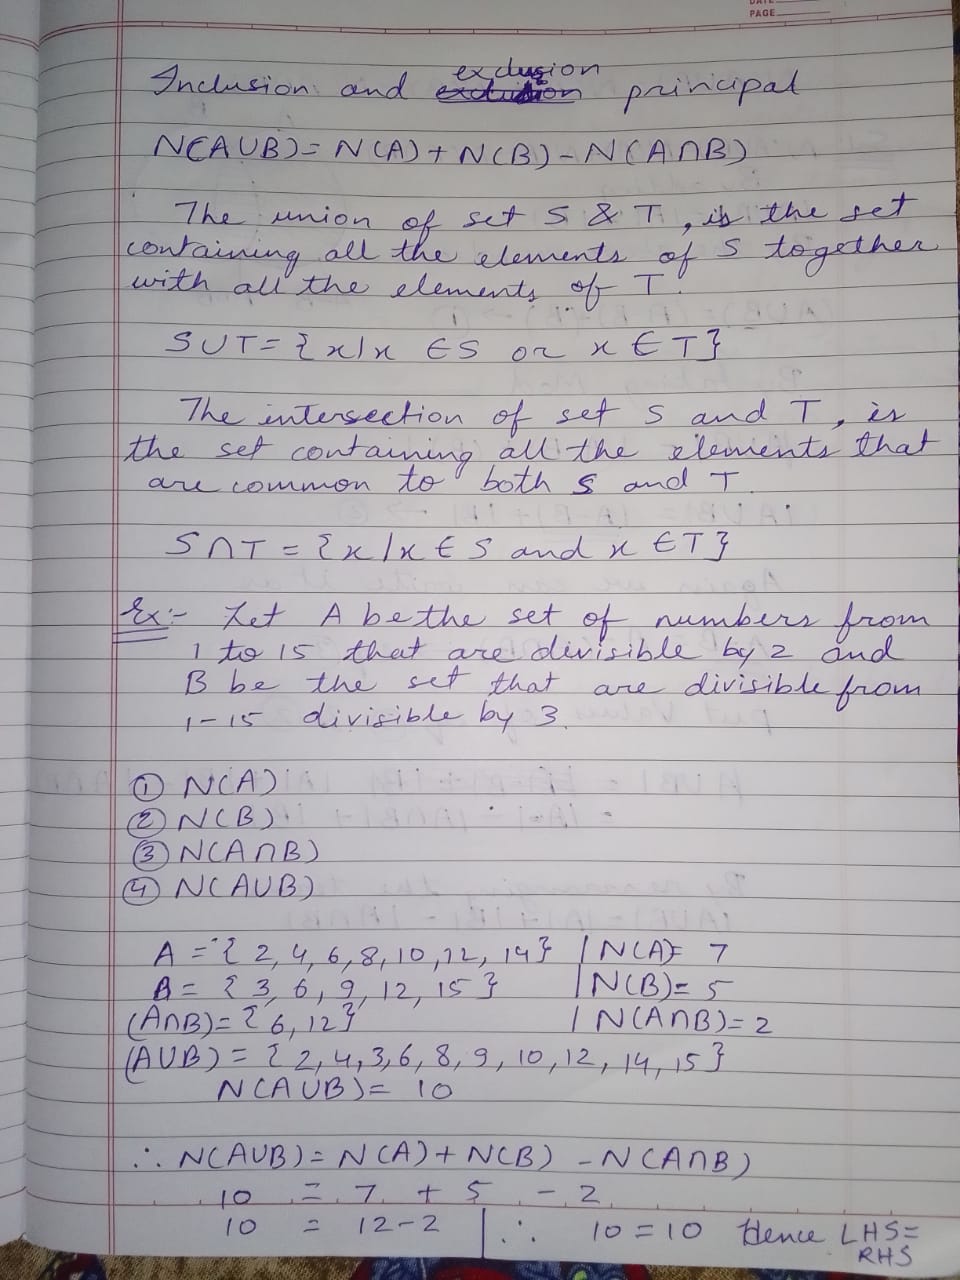 DATE
PAGE
Inclusion and exclusion principal
N(AUB) = N(A) + N(B) - N(A∩B)
The union of set S & T, is the set
containing all the elements of S together
with all the elements of T.
SUT = {x|x ∈ S or x ∈ T}
The intersection of set S and T, is
the set containing all the elements that
are common to both S and T
S∩T = {x|x ∈ S and x ∈ T}
Ex:- Let A be the set of numbers from
1 to 15 that are divisible by 2 and
B be the set that are divisible from
1-15 divisible by 3.
① N(A)
② N(B)
③ N(A∩B)
④ N(AUB)
A = { 2, 4, 6, 8, 10, 12, 14} | N(A) = 7
B = { 3, 6, 9, 12, 15 } | N(B) = 5
(A∩B) = { 6, 12} | N(A∩B) = 2
(AUB) = { 2, 4, 3, 6, 8, 9, 10, 12, 14, 15}
N(AUB) = 10
∴ N(AUB) = N(A) + N(B) - N(A∩B)
10 = 7 + 5 - 2
10 = 12-2 | ∴ 10 = 10 Hence LHS =
RHS